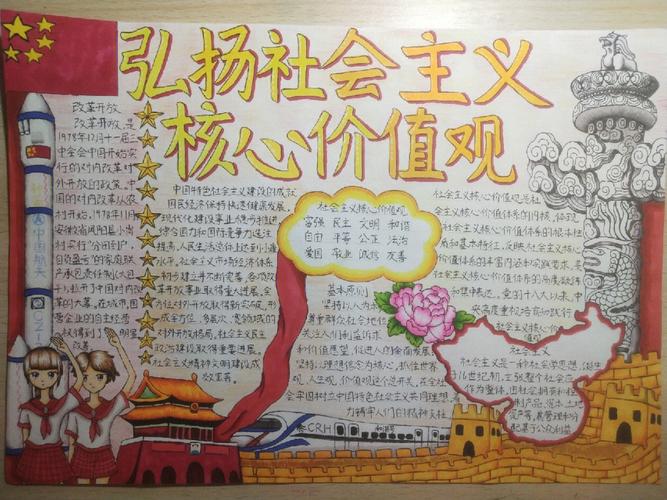 弘扬社会主义
核心价值观
改革开放
改革开放,是
1978年12月十一届三
中全会中国开始实
行的对内改革对
外开放的政策。中
国的对内改革从农
村开始,1978年11月
安徽省凤阳县小岗
村实行"分田到户,
自负盈亏"的家庭联
产承包责任制(大包
干),拉开了中国对内改
革的大幕。在城市,国
营企业的自主经营
权得到了明显
改善。
中国航天
中国特色社会主义建设的成就
国民经济保持快速健康发展。
现代化建设事业顺利推进
综合国力和国际竞争力
提高,人民生活总体上达到小康
水平。社会主义市场经济体系
初步建立并不断完善,各项改
革开放事业取得重大进展。全
方位对外开放取得新突破,形
成全方位、多层次、宽领域的
对外开放格局。社会主义民主
政治建设取得重要进展。
社会主义精神文明建设成
效显著。
社会主义核心价值观
富强 民主 文明 和谐
自由 平等 公正 法治
爱国 敬业 诚信 友善
基本原则
坚持以人为本,
尊重群众主体地位,
关注人们利益诉求
和价值愿望,促进人的全面发展;
坚持以理想信念为核心,抓住世界
观、人生观、价值观这个总开关,在全社
会牢固树立中国特色社会主义共同理想,着
力铸牢人们的精神支柱
社会主义核心价值观是社
会主义核心价值体系的内核,体现
社会主义核心价值体系的根本性
质和基本特征,反映社会主义核心
价值体系的丰富内涵和实践要求,是
社会主义核心价值体系的高度凝练
和集中表达。党的十八大以来,中
央高度重视培育和践行
社会主义核心价值
观
社会主义
社会主义是一种社会学思想,诞生
于16世纪初,主张整个社会应
作为整体,由社会拥有和控
制产品、资本、土地、
资产等,其管理和分
配基于公众利益
CRH 和谐号